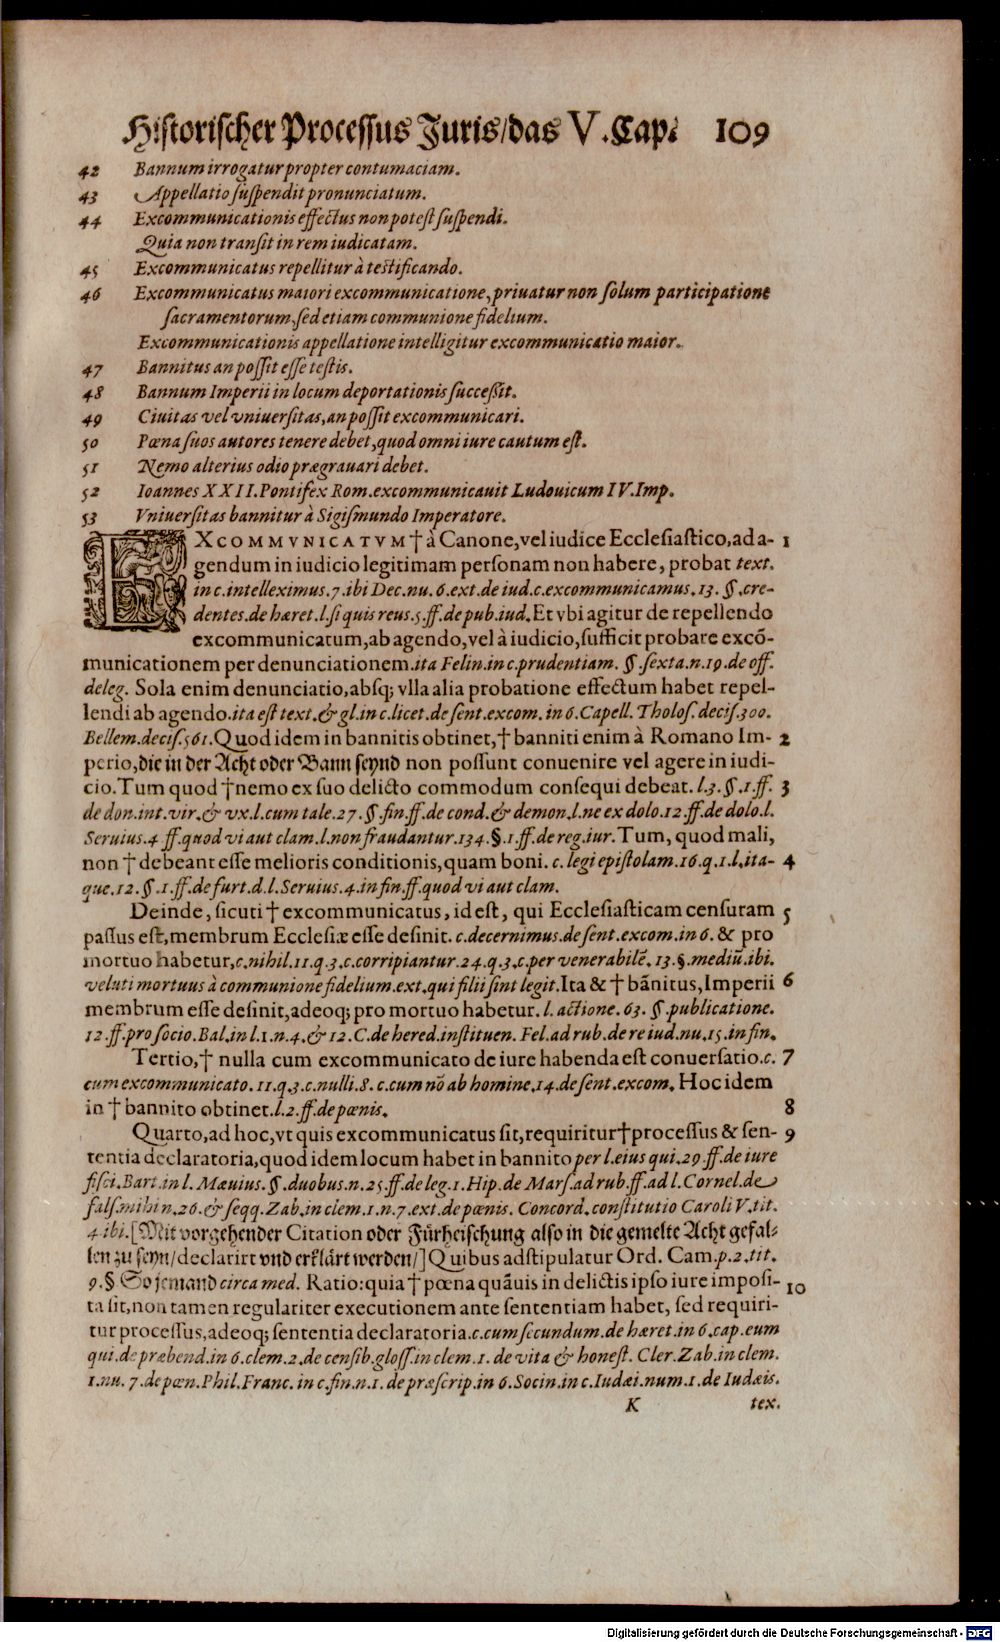 Historischer Processus Juris/das V. Cap. 109
42 Bannum irrogatur propter contumaciam.
43 Appellatio suspendit pronunciatum.
44 Excommunicationis effectus non potest suspendi.
Quia non transit in rem iudicatam.
45 Excommunicatus repellitur à testificando.
46 Excommunicatus maiori excommunicatione, priuatur non solum participatione
sacramentorum, sed etiam communione fidelium.
Excommunicationis appellatione intelligitur excommunicatio maior.
47 Bannitus an possit esse testis.
48 Bannum Imperii in locum deportationis successit.
49 Ciuitas vel vniuersitas, an possit excommunicari.
50 Pœna suos autores tenere debet, quod omni iure cautum est.
51 Nemo alterius odio prægrauari debet.
52 Ioannes XXII. Pontifex Rom. excommunicauit Ludouicum IV. Imp.
53 Vniuersitas bannitur à Sigismundo Imperatore.
EXCOMMVNICATVM † à Canone, vel iudice Ecclesiastico, ad a- 1
gendum in iudicio legitimam personam non habere, probat text.
in c. intelleximus. 7. ibi Dec. nu. 6. ext. de iud. c. excommunicamus. 13. §. cre-
dentes. de hæret. l. si quis reus. 5. ff. de pub. iud. Et vbi agitur de repellendo
excommunicatum, ab agendo, vel à iudicio, sufficit probare excõ-
municationem per denunciationem. ita Felin. in c. prudentiam. §. sexta. n. 19. de off.
deleg. Sola enim denunciatio, absq; vlla alia probatione effectum habet repel-
lendi ab agendo. ita est text. & gl. in c. licet. de sent. excom. in 6. Capell. Tholos. decis. 300.
Bellem. decis. 561. Quod idem in bannitis obtinet, † banniti enim à Romano Im- 2
perio, die in der Acht oder Bann seynd non possunt conuenire vel agere in iudi-
cio. Tum quod † nemo ex suo delicto commodum consequi debeat. l. 3. §. 1. ff. 3
de don. int. vir. & vx. l. cum tale. 27. §. fin. ff. de cond. & demon. l. ne ex dolo. 12. ff. de dolo. l.
Seruius. 4 ff. quod vi aut clam. l. non fraudantur. 134. §. 1. ff. de reg. iur. Tum, quod mali,
non † debeant esse melioris conditionis, quam boni. c. legi epistolam. 16. q. 1. l. ita- 4
que. 12. §. 1. ff. de furt. d. l. Seruius. 4. in fin. ff. quod vi aut clam.
Deinde, sicuti † excommunicatus, id est, qui Ecclesiasticam censuram 5
passus est, membrum Ecclesiæ esse desinit. c. decernimus. de sent. excom. in 6. & pro
mortuo habetur, c. nihil. 11. q. 3. c. corripiantur. 24. q. 3. c. per venerabilẽ. 13. §. mediũ. ibi.
veluti mortuus à communione fidelium. ext. qui filii sint legit. Ita & † bãnitus, Imperii 6
membrum esse desinit, adeoq; pro mortuo habetur. l. actione. 63. §. publicatione.
12. ff. pro socio. Bal. in l. 1. n. 4. & 12. C. de hered. instituen. Fel. ad rub. de re iud. nu. 15. in fin.
Tertio, † nulla cum excommunicato de iure habenda est conuersatio. c. 7
cum excommunicato. 11. q. 3. c. nulli. 8. c. cum nõ ab homine. 14. de sent. excom. Hoc idem
in † bannito obtinet. l. 2. ff. de pœnis. 8
Quarto, ad hoc, vt quis excommunicatus sit, requiritur † processus & sen- 9
tentia declaratoria, quod idem locum habet in bannito per l. eius qui. 29. ff. de iure
fisci. Bart. in l. Mæuius. §. duobus. n. 25. ff. de leg. 1. Hip. de Mars. ad rub. ff. ad l. Cornel. de
fals. mihi n. 26. & seqq. Zab. in clem. 1. n. 7. ext. de pœnis. Concord. constitutio Caroli V. tit.
4. ibi. [Mit vorgehender Citation oder Fürheischung also in die gemelte Acht gefal-
len zu seyn/ declarirt vnd erklärt werden/] Quibus adstipulatur Ord. Cam. p. 2. tit.
9. § So jemand circa med. Ratio: quia † pœna quãuis in delictis ipso iure imposi- 10
ta sit, non tamen regulariter executionem ante sententiam habet, sed requiri-
tur processus, adeoq; sententia declaratoria. c. cum secundum. de hæret. in 6. cap. eum
qui. de præbend. in 6. clem. 2. de censib. gloss. in clem. 1. de vita & honest. Cler. Zab. in clem.
1. nu. 7. de pœn. Phil. Franc. in c. fin. n. 1. de præscrip. in 6. Socin. in c. Iudæi. num. 1. de Iudæis.
K tex.
Digitalisierung gefördert durch die Deutsche Forschungsgemeinschaft - DFG